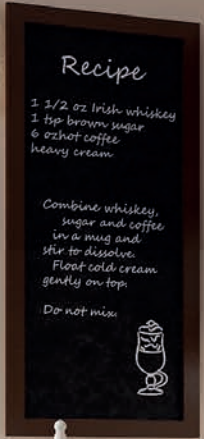 Recipe
1 1/2 oz Irish whiskey
1 tsp brown sugar
6 ozhot coffee
heavy cream
Combine whiskey,
sugar and coffee
in a mug and
stir to dissolve.
Float cold cream
gently on top.
Do not mix.